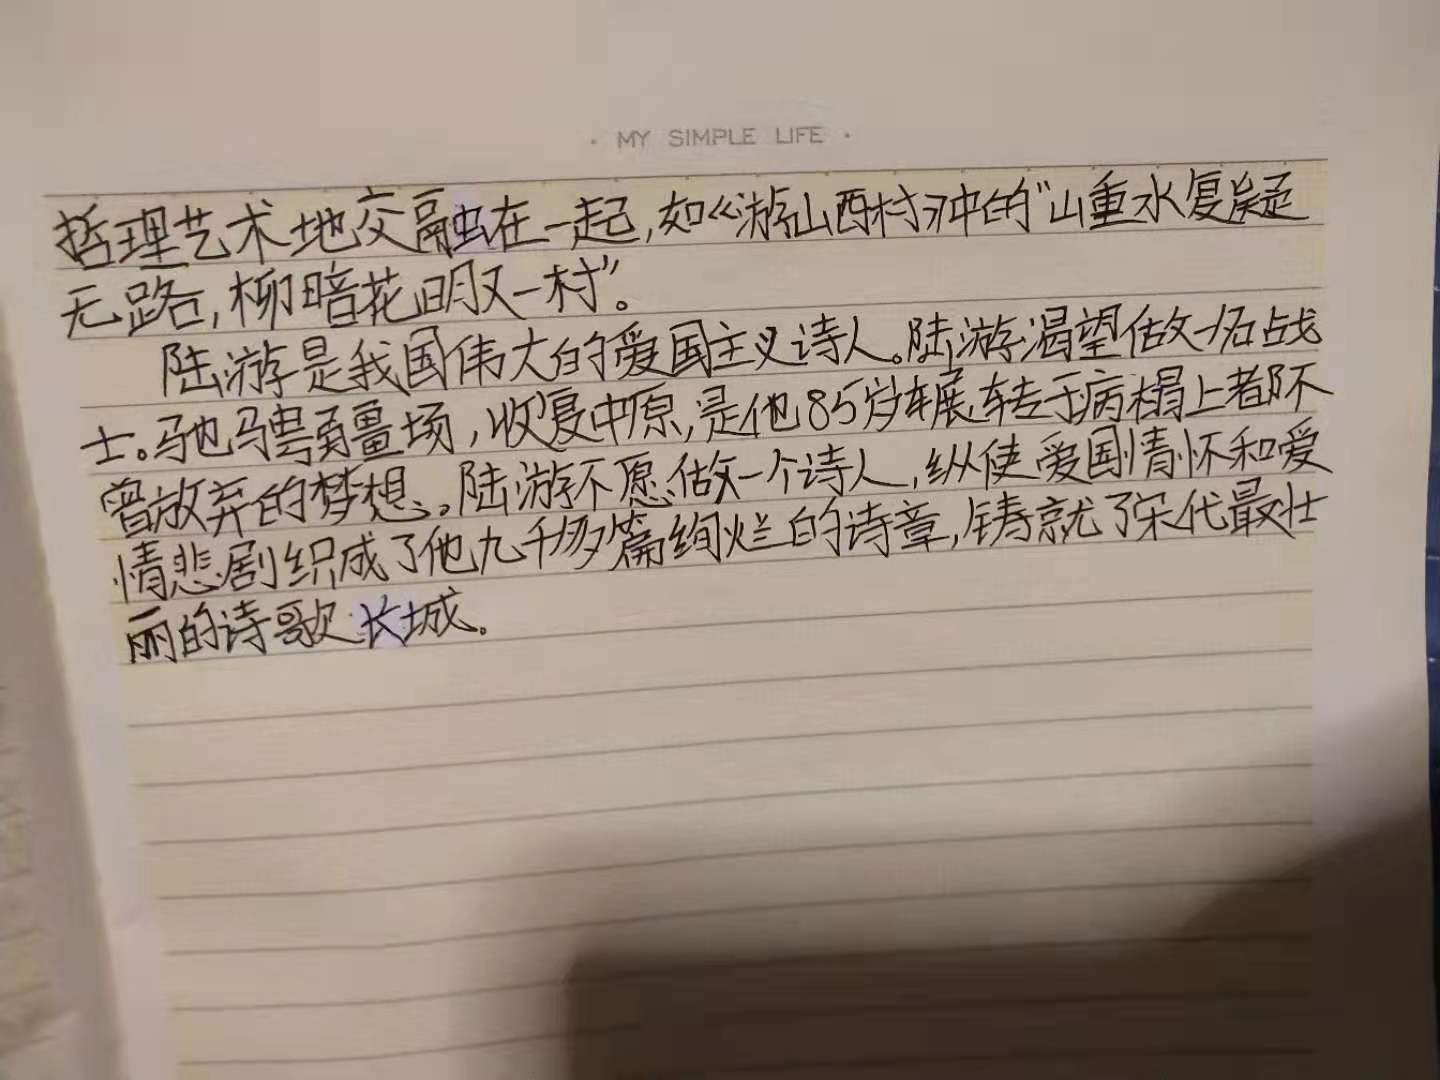 · MY SIMPLE LIFE ·
哲理艺术地交融在一起,如《游山西村》中的"山重水复疑
无路,柳暗花明又一村"。
陆游是我国伟大的爱国主义诗人。陆游渴望做一名战
士。驰骋疆场,收复中原,是他85岁辗转于病榻上都不
曾放弃的梦想。陆游不愿做一个诗人,纵使爱国情怀和爱
情悲剧织成了他九千多篇绚烂的诗章,铸就了宋代最壮
丽的诗歌长城。